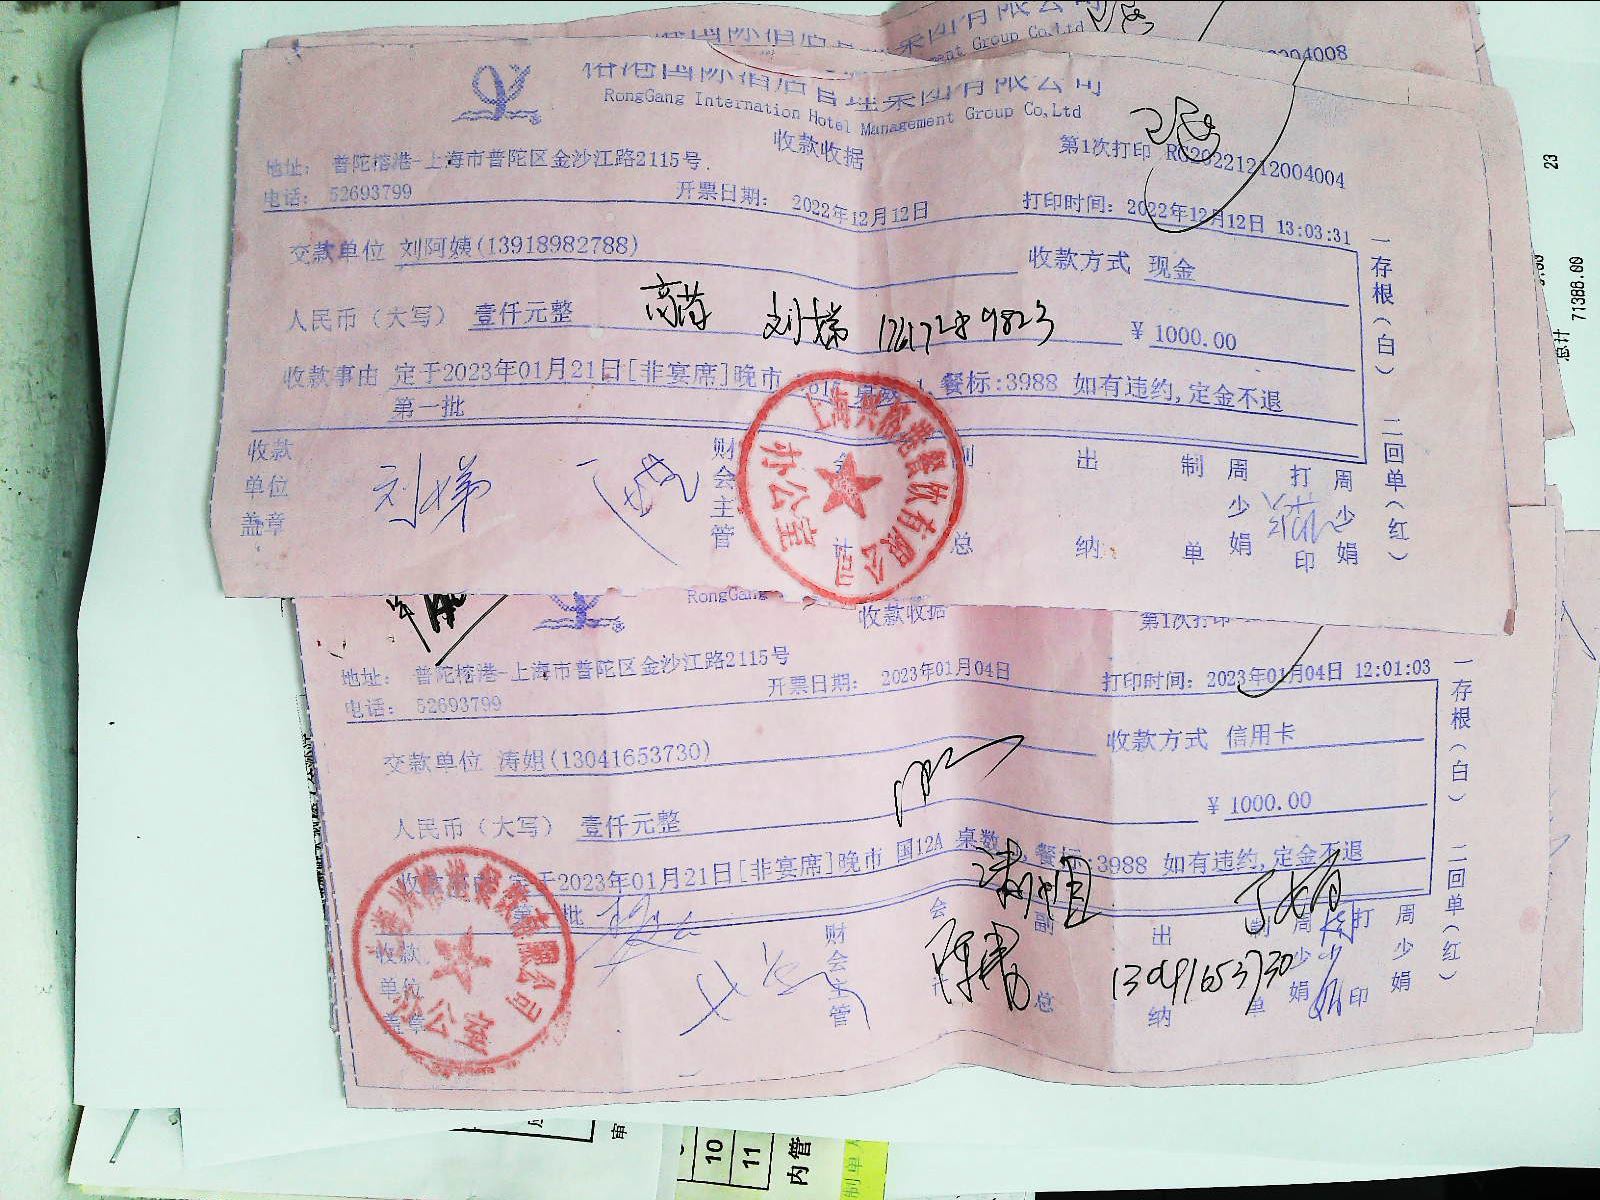 004008
榕港国际酒店管理集团有限公司
RongGang Internation Hotel Management Group Co,Ltd
收款收据
第1次打印 RG20221212004004
地址: 普陀榕港-上海市普陀区金沙江路2115号.
电话: 52693799
开票日期: 2022年12月12日
打印时间: 2022年12月12日 13:03:31
交款单位 刘阿姨(13918982788)
收款方式 现金
人民币(大写) 壹仟元整
¥ 1000.00
收款事由 定于2023年01月21日[非宴席]晚市
餐标:3988 如有违约,定金不退
第一批
收款单位盖章
财会主管
副总
出纳
制单 周少娟
打印 周少娟
一存根(白) 二回单(红)
上海兴榕港餐饮有限公司
办公室
RongGang
收款收据
第1次打印
地址: 普陀榕港-上海市普陀区金沙江路2115号
电话: 52693799
开票日期: 2023年01月04日
打印时间: 2023年01月04日 12:01:03
交款单位 涛姐(13041653730)
收款方式 信用卡
人民币(大写) 壹仟元整
¥ 1000.00
定于2023年01月21日[非宴席]晚市 国12A 桌数
餐标:3988 如有违约,定金不退
第一批
13041653730
收款单位盖章
财会主管
副总
出纳
制单 周少娟
打印 周少娟
一存根(白) 二回单(红)
上海兴榕港餐饮有限公司
办公室
23
71386.00
总计
审
10
11
内管
制单